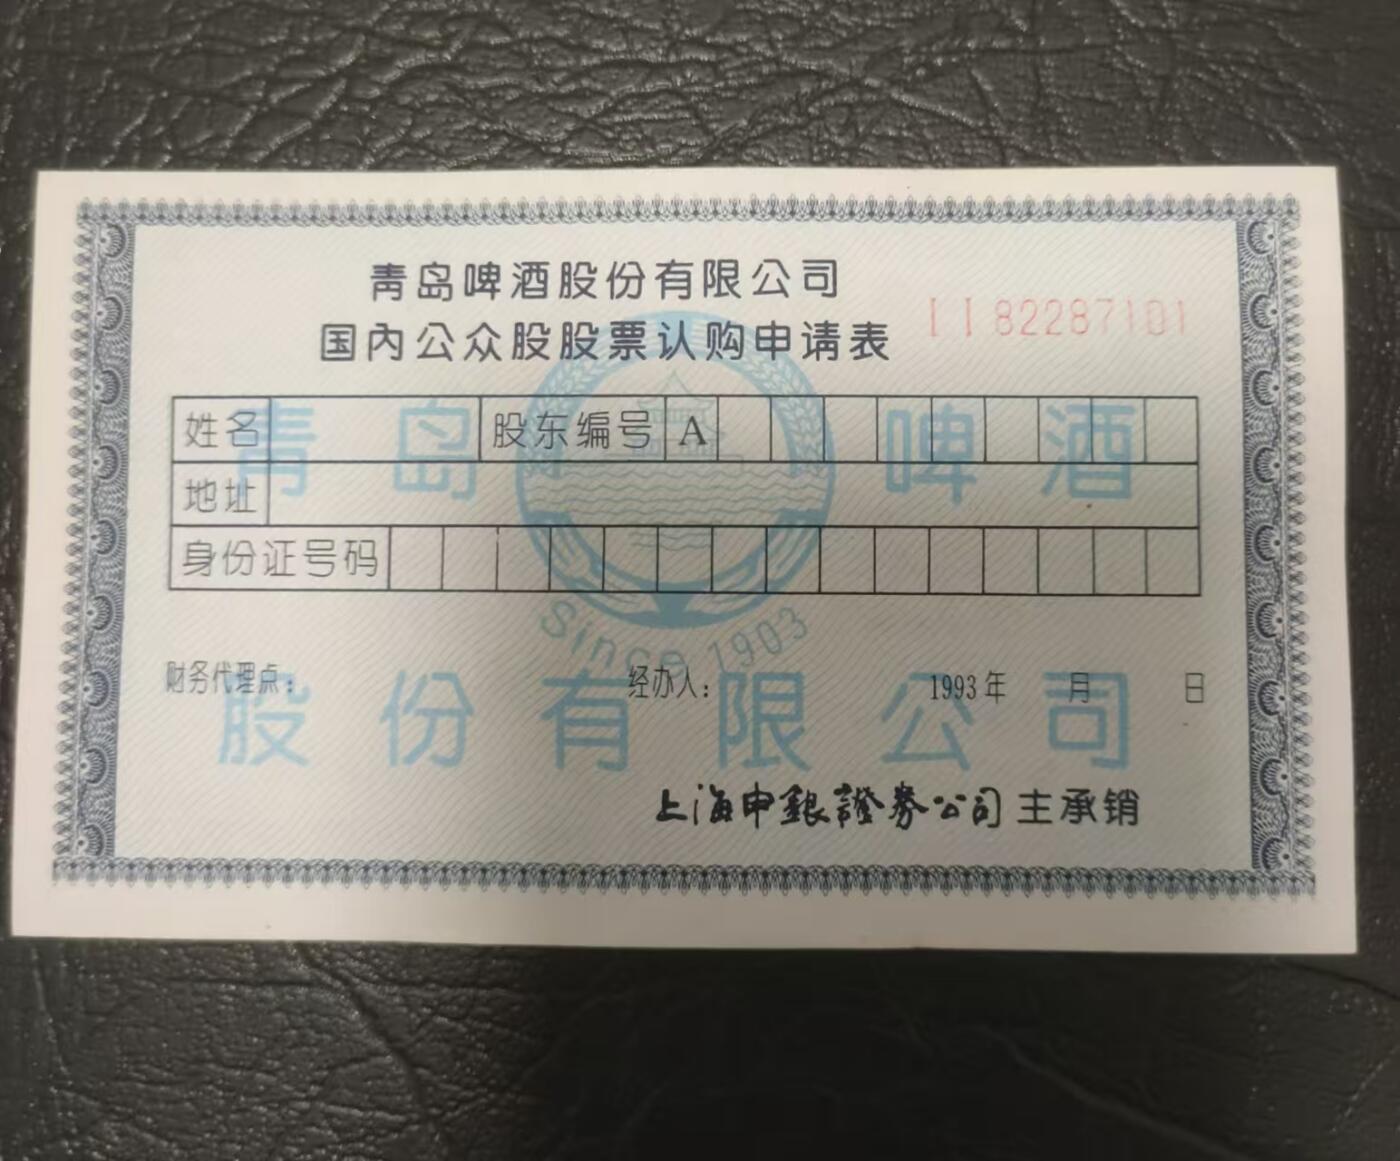 青岛啤酒股份有限公司
国内公众股股票认购申请表
II82287101
姓名 股东编号 A
地址
身份证号码
青岛啤酒
Since 1903
财务代理点： 经办人： 1993年 月 日
股份有限公司
上海申銀證券公司 主承销